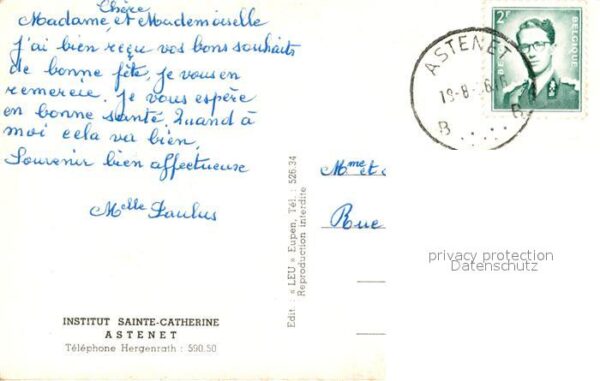 Chère
Madame et Mademoiselle
J'ai bien reçue vos bons souhaits
de bonne fête, je vous en
remercie. Je vous espère
en bonne santé. Quand à
moi cela va bien.
Souvenir bien affectueuse
Melle Paulus
INSTITUT SAINTE-CATHERINE
ASTENET
Téléphone Hergenrath : 590.50
Edit. : « LEU » Eupen, Tél. : 526.34
Reproduction interdite
2F
BELGIQUE
ASTENET
B B
Mme et
Rue
privacy protection
Datenschutz